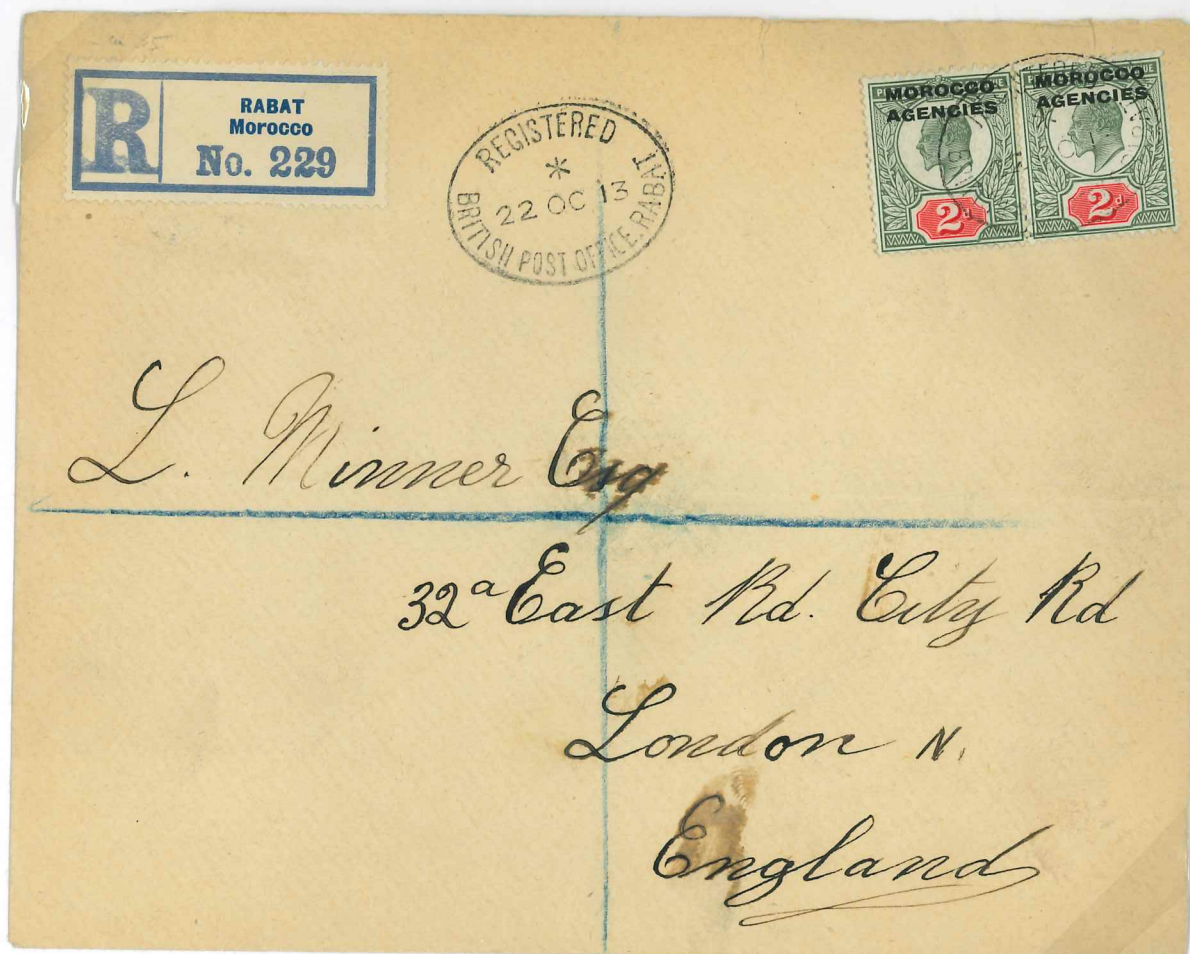 R
RABAT
Morocco
No. 229
REGISTERED
22 OC 13
BRITISH POST OFFICE. RABAT
MOROCCO
AGENCIES
2d
MOROCCO
AGENCIES
2d
L. Minner Esq
32a East Rd. City Rd
London N.
England